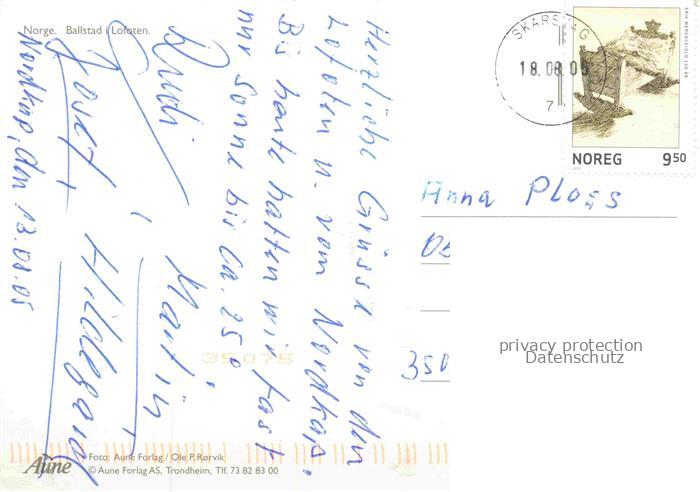 Norge. Ballstad i Lofoten.
Herzliche Grüsse von den
Lofoten u. vom Nordkap.
Bis heute hatten wir fast
nur Sonne bis Ca. 25°
Rudi Martin
Josef Hildegard
Nordkap, den 13.08.05
SKARSVÅG
18.08.05
7
NOREG 9 50
Anna Ploes
350
privacy protection
Datenschutz
35075
Aune
Foto: Aune Forlag / Ole P. Rørvik
© Aune Forlag AS, Trondheim, Tlf. 73 82 83 00